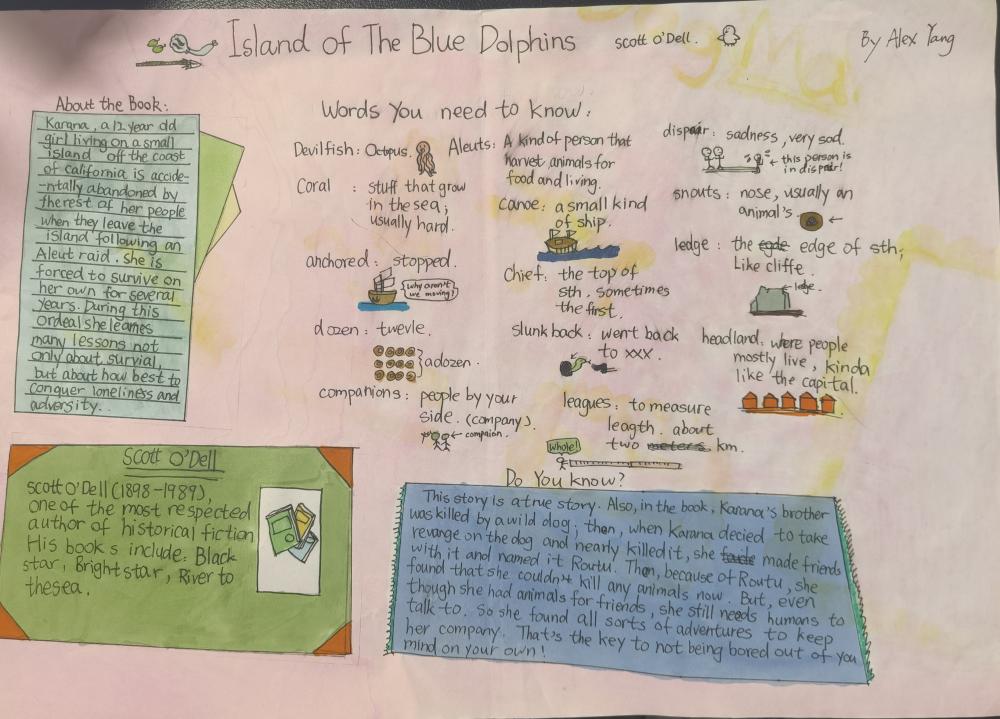 Island of The Blue Dolphins
scott O'Dell.
By Alex Yang
About the Book:
Karana, a 12 year old
girl living on a small
island off the coast
of california is accide-
-ntally abandoned by
therest of her people
when they leave the
island following an
Aleut raid. she is
forced to survive on
her own for several
years. During this
ordeal she learnes
many lessons not
only about survial,
but about how best to
conquer loneliness and
adversity.
Words You need to know:
Devilfish: Octopus.
Coral : stuff that grow
in the sea,
usually hard.
anchored: stopped.
why aren't
we moving?
dozen: twevle.
adozen.
companions: people by your
side. (company).
you
compaion.
Aleuts: A kind of person that
harvest animals for
food and living.
canoe: a small kind
of ship.
chief: the top of
sth. sometimes
the first.
slunk back: went back
to xxx.
leagues: to measure
leagth. about
two meters km.
whole!
dispair: sadness, very sad.
this person is
in dispair!
snouts: nose, usually an
animal's.
ledge: the egde edge of sth;
Like cliffe.
ledge.
headland: were people
mostly live, kinda
like the capital.
Scott O'Dell
scott O'Dell (1898-1989),
one of the most respected
author of historical fiction
His book s include: Black
star, Bright star, River to
thesea.
Do You know?
This story is a true story. Also, in the book, Karana's brother
was killed by a wild dog; then, when Karana decied to take
revange on the dog and nearly killed it, she made friends
with it and named it Routu. Then, because of Routu, she
found that she couldn't kill any animals now. But, even
though she had animals for friends, she still needs humans to
talk to. So she found all sorts of adventures to keep
her company. That's the key to not being bored out of you
mind on your own!